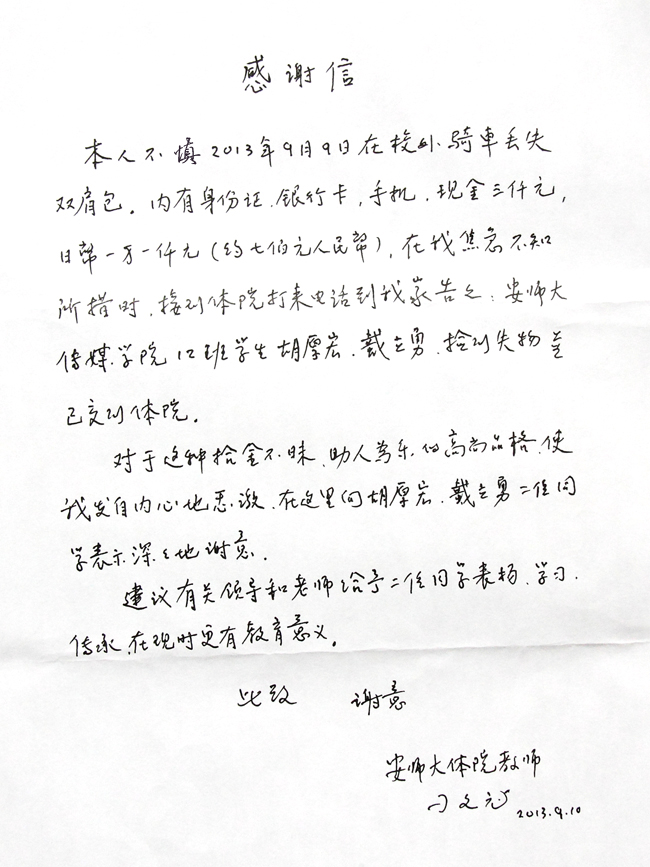 感谢信
本人不慎2013年9月9日在校外骑車丢失
双肩包。内有身份证、银行卡,手机、现金三仟元,
日幣一万一仟元(约七佰元人民幣),在我焦急不知
所措时,接到体院打来电话到我家告之:安师大
传媒学院12班学生胡厚宏、戴立勇、捡到失物並
已交到体院。
对于这种拾金不昧、助人為乐的高尚品格、使
我发自内心地感激、在这里向胡厚宏、戴立勇二位同
学表示深々地谢意。
建议有关领导和老师给予二位同学表扬、学习、
传承、在现时更有教育意义。
此致 谢意
安师大体院教师
2013.9.10